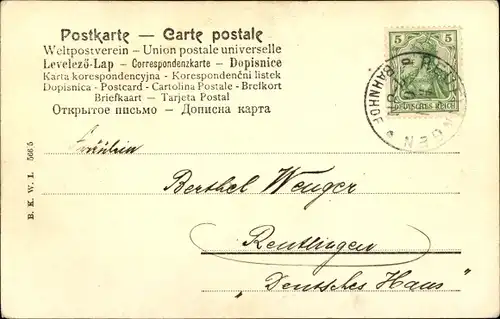 Postkarte — Carte postale
Weltpostverein - Union postale universelle
Levelező-Lap - Correspondenzkarte - Dopisnice
Karta korespondencyjna - Korespondenční lístek
Dopisnica - Postcard - Cartolina Postale - Brefkort
Briefkaart - Tarjeta Postal
Открытое письмо - Дописна карта
5 5
DEUTSCHES REICH
BAHNHOF
Fräulein
Berthel Wenger
Reutlingen
„Deutsches Haus"
B. K. W. I. 566/5